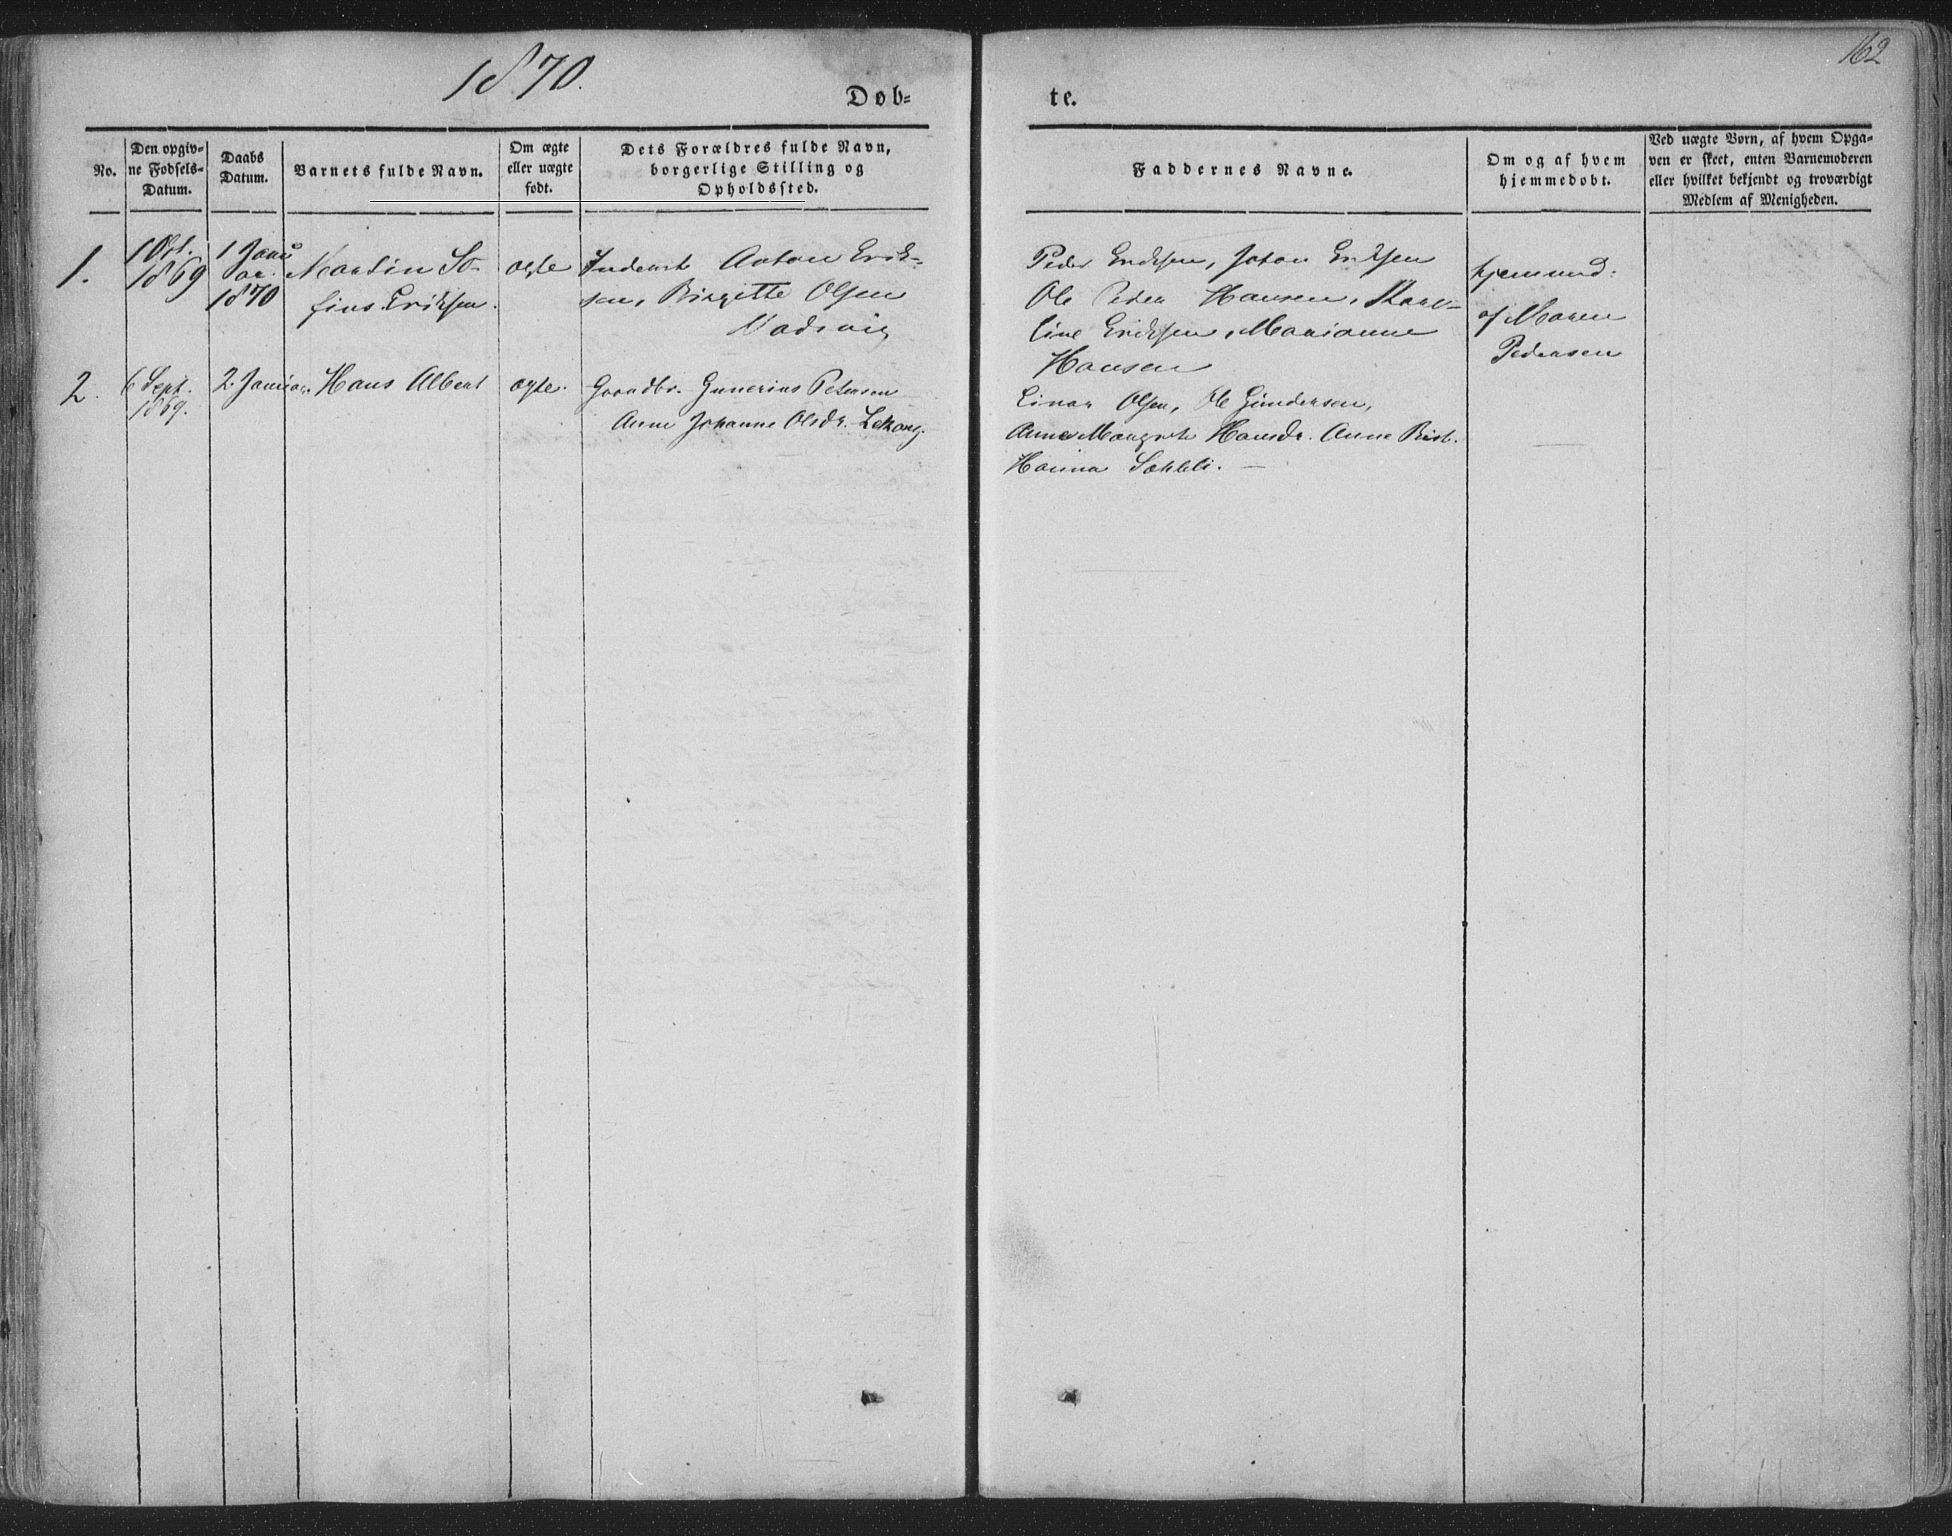 1870.
162
Døb-
te.
No.
Den opgiv-
ne Fødsels-
Datum.
Daabs
Datum.
Barnets fulde Navn.
Om ægte
eller uægte
født.
Dets Forældres fulde Navn,
borgerlige Stilling og
Opholdssted.
Faddernes Navne.
Om og af hvem
hjemmedøbt.
Ved uægte Børn, af hvem Opga-
ven er skeet, enten Barnemoderen
eller hvilket bekjendt og troværdigt
Medlem af Menigheden.
1.
1 Oct.
1869
1 Janu
ar.
1870
Martin So-
fius Eriksen.
ægte
Inderst Anton Erik-
sen, Birgitte Olsen
Peder Eriksen, Johan Eriksen
Ole Peder Hansen, Karo-
line Eriksen, Marianne
Hansen
hjemmed:
af Maren
Pedersen
2.
6 Sept.
1869.
2. Januar.
Hans Albert
ægte.
Gaardbr. Gunerius Petersen
Anne Johanne Olsdr. Lekang.
Einar Olsen, Ole Gundersen,
Anne Margrete Hansdr. Anne Birit.
Hanna